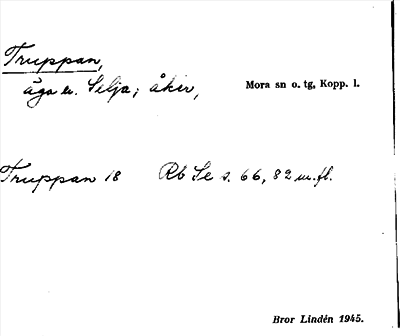 Truppan,
äga u. Selja; åker, Mora sn o. tg, Kopp. l.
Truppan 18 Rb Se s. 66, 82 m. fl.
Bror Lindén 1945.